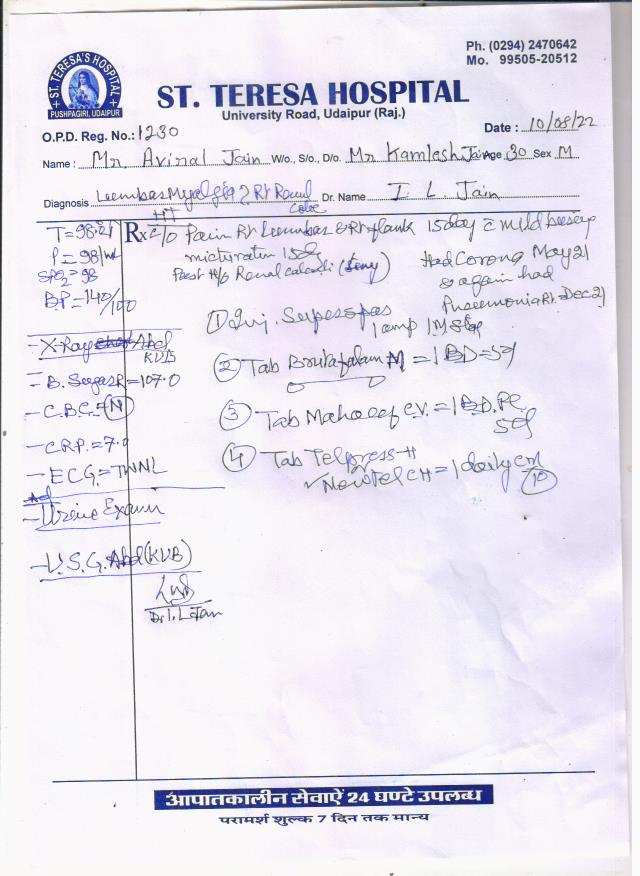 Ph. (0294) 2470642
Mo. 99505-20512
ST. TERESA'S HOSPITAL
PUSHPAGIRI, UDAIPUR
ST. TERESA HOSPITAL
University Road, Udaipur (Raj.)
O.P.D. Reg. No.: 1230
Date : 10/08/22
Name : Mr Avinal Jain W/o., S/o., D/o. Mr Kamlesh Jain Age 30 Sex M
Diagnosis Leembas Myalgia ? Rt Renal Colic Dr. Name I. L. Jain
HT
T = 98.2f
P = 98/mt
SPO2 = 98
BP = 140/100
- X-Ray Abd KUB
- B. Sugar R = 107.0
- C.B.C. = (N)
- CRP. = 7.0
- ECG. =
Ad
- Ureine Exam
- U.S.G. Abd (KUB)
Dr. I. L Jain
Rx c/o Pain Rt Leembas & Rt flank 15day c mild
micturation 15dy
Past H/o Renal calculi
Had Corona May 21
& again had
Pneemonia Rt. Dec 21
① Inj. Supesspas
1 amp 1M
② Tab M = 1 BD = 5d
③ Tab Mahacef CV. = 1 BD. PC
5d
④ Tab Telpress-H
✓ New Tel CH = 1 daily CM
(10)
आपातकालीन सेवाऐं 24 घण्टे उपलब्ध
परामर्श शुल्क 7 दिन तक मान्य